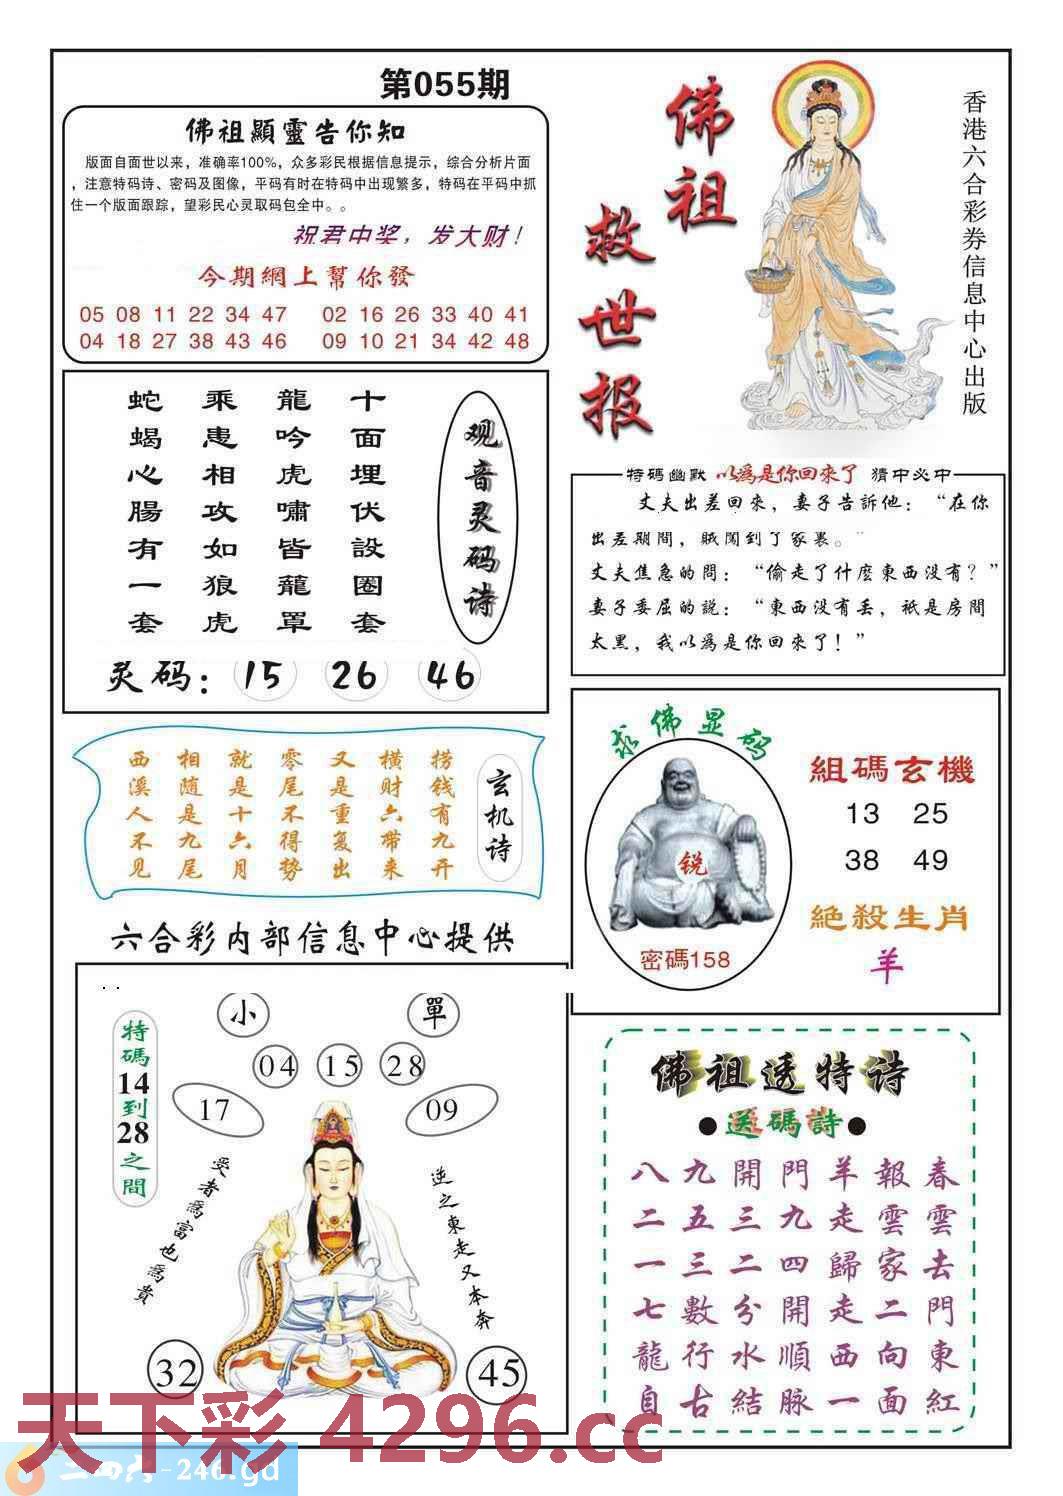 第055期
佛祖顯靈告你知
版面自面世以来，准确率100%，众多彩民根据信息提示，综合分析片面
，注意特码诗、密码及图像，平码有时在特码中出现繁多，特码在平码中抓
住一个版面跟踪，望彩民心灵取码包全中。。
祝君中奖，发大财！
今期網上幫你發
05 08 11 22 34 47 02 16 26 33 40 41
04 18 27 38 43 46 09 10 21 34 42 48
佛祖
救世报
香港六合彩券信息中心出版
观音灵码诗
十面埋伏設圈套
龍吟虎嘯皆蘢罩
乘患相攻如狼虎
蛇蝎心腸有一套
灵码：15 26 46
特码幽默 以為是你回來了 猜中必中
丈夫出差回來，妻子告訴他：“在你
出差期間，賊闖到了家裏。”
丈夫焦急的問：“偷走了什麼東西没有？”
妻子委屈的説：“東西没有丢，祇是房間
太黑，我以爲是你回來了！”
玄机诗
捞钱有九开
横财六带来
又是重复出
零尾不得势
就是十六月
相随是九尾
西溪人不见
求佛显码
锐
密碼158
組碼玄機
13 25
38 49
絶殺生肖
羊
六合彩内部信息中心提供
小 單
04 15 28
17 09
特碼14到28之間
受者爲富也爲貴
逆之東走又本奔
32 45
佛祖透特诗
●送碼詩●
八九開門羊報春
二五三九走雲雲
一三二四歸家去
七數分開走二門
龍行水順西向東
自古結脉一面紅
天下彩 4296.cc
二四六-246.gd